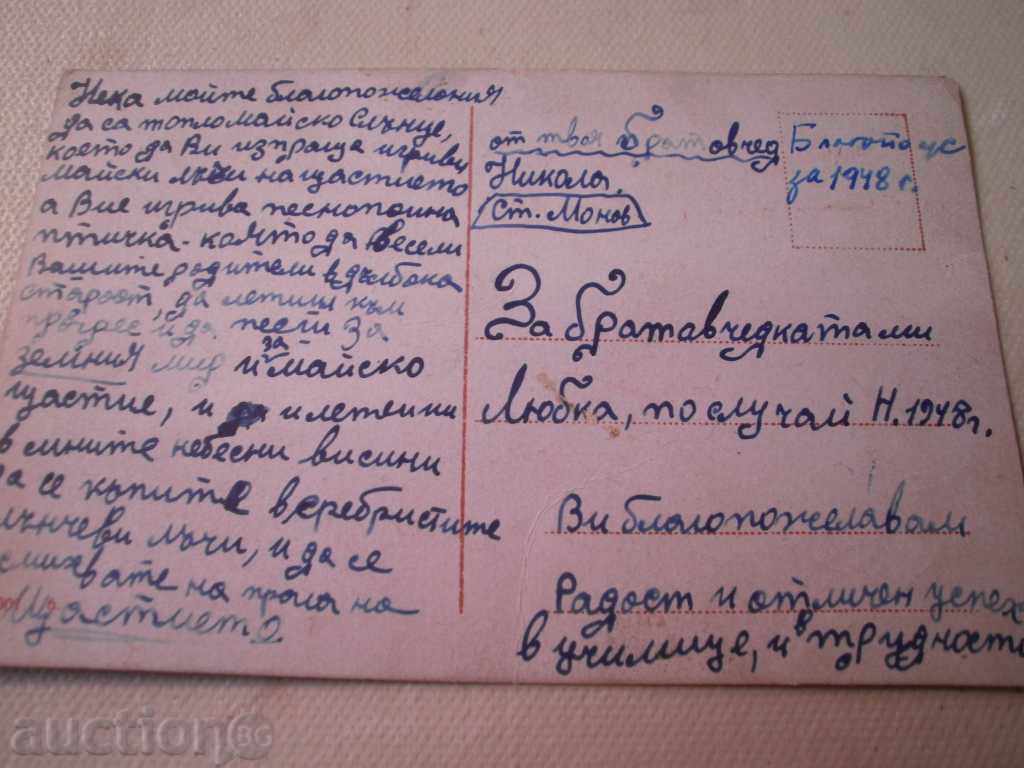 Нека мойте благопожелания
да са топло майско Слънце,
което да Ви изпраща игриви
майски лъчи на щастието
а Вие игрива песнопойна
птичка - която да весели
Вашите родители в дълбока
старост, да летиш към
прогрес и да пееш за
земния мир и за майско
щастие, и да и летейки
в сините небесни висини
да се къпите в сребристите
слънчеви лъчи, и да се
смихвате на прага на
Щастието.
от твоя братовчед
Никола.
Ст. Монов
за 1948 г.
За братавчедката ми
Любка, по случай Н. 1948 г.
Ви благопожелавам
Радост и отличен успех
в училище, и в трудности
auction BG